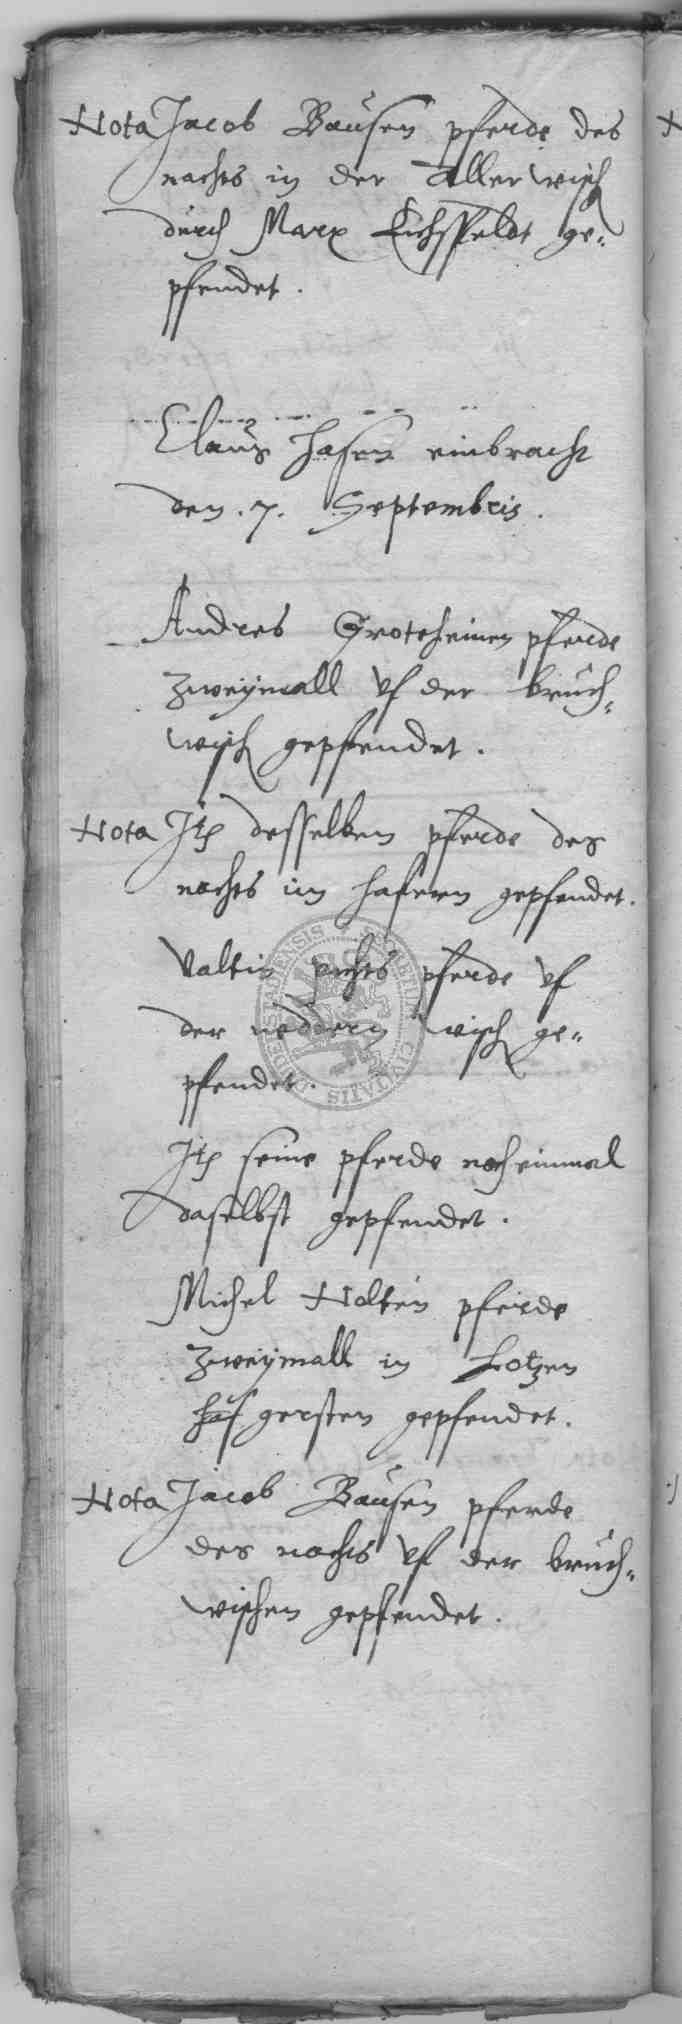 Nota Jacob Bausen pferde des
nachts in der Allerwisch
durch Marx Eichsfeldt ge-
pfendet.
Clauß Hasen einbracht
den .7. Septembris.
Andres Groteheinen pferde
zweymall vf der bruch-
wisch gepfendet.
Nota Itz desselben pferde des
nachts im hafern gepfendet.
Valtin pferde vf
der neddern wisch ge-
pfendet.
Itz seine pferde noch einmal
daselbst gepfendet.
Michel Nolten pferde
zweymall in Lotzen
gersten gepfendet.
Nota Jacob Bausen pferde
des nachts vf der bruch-
wischen gepfendet.